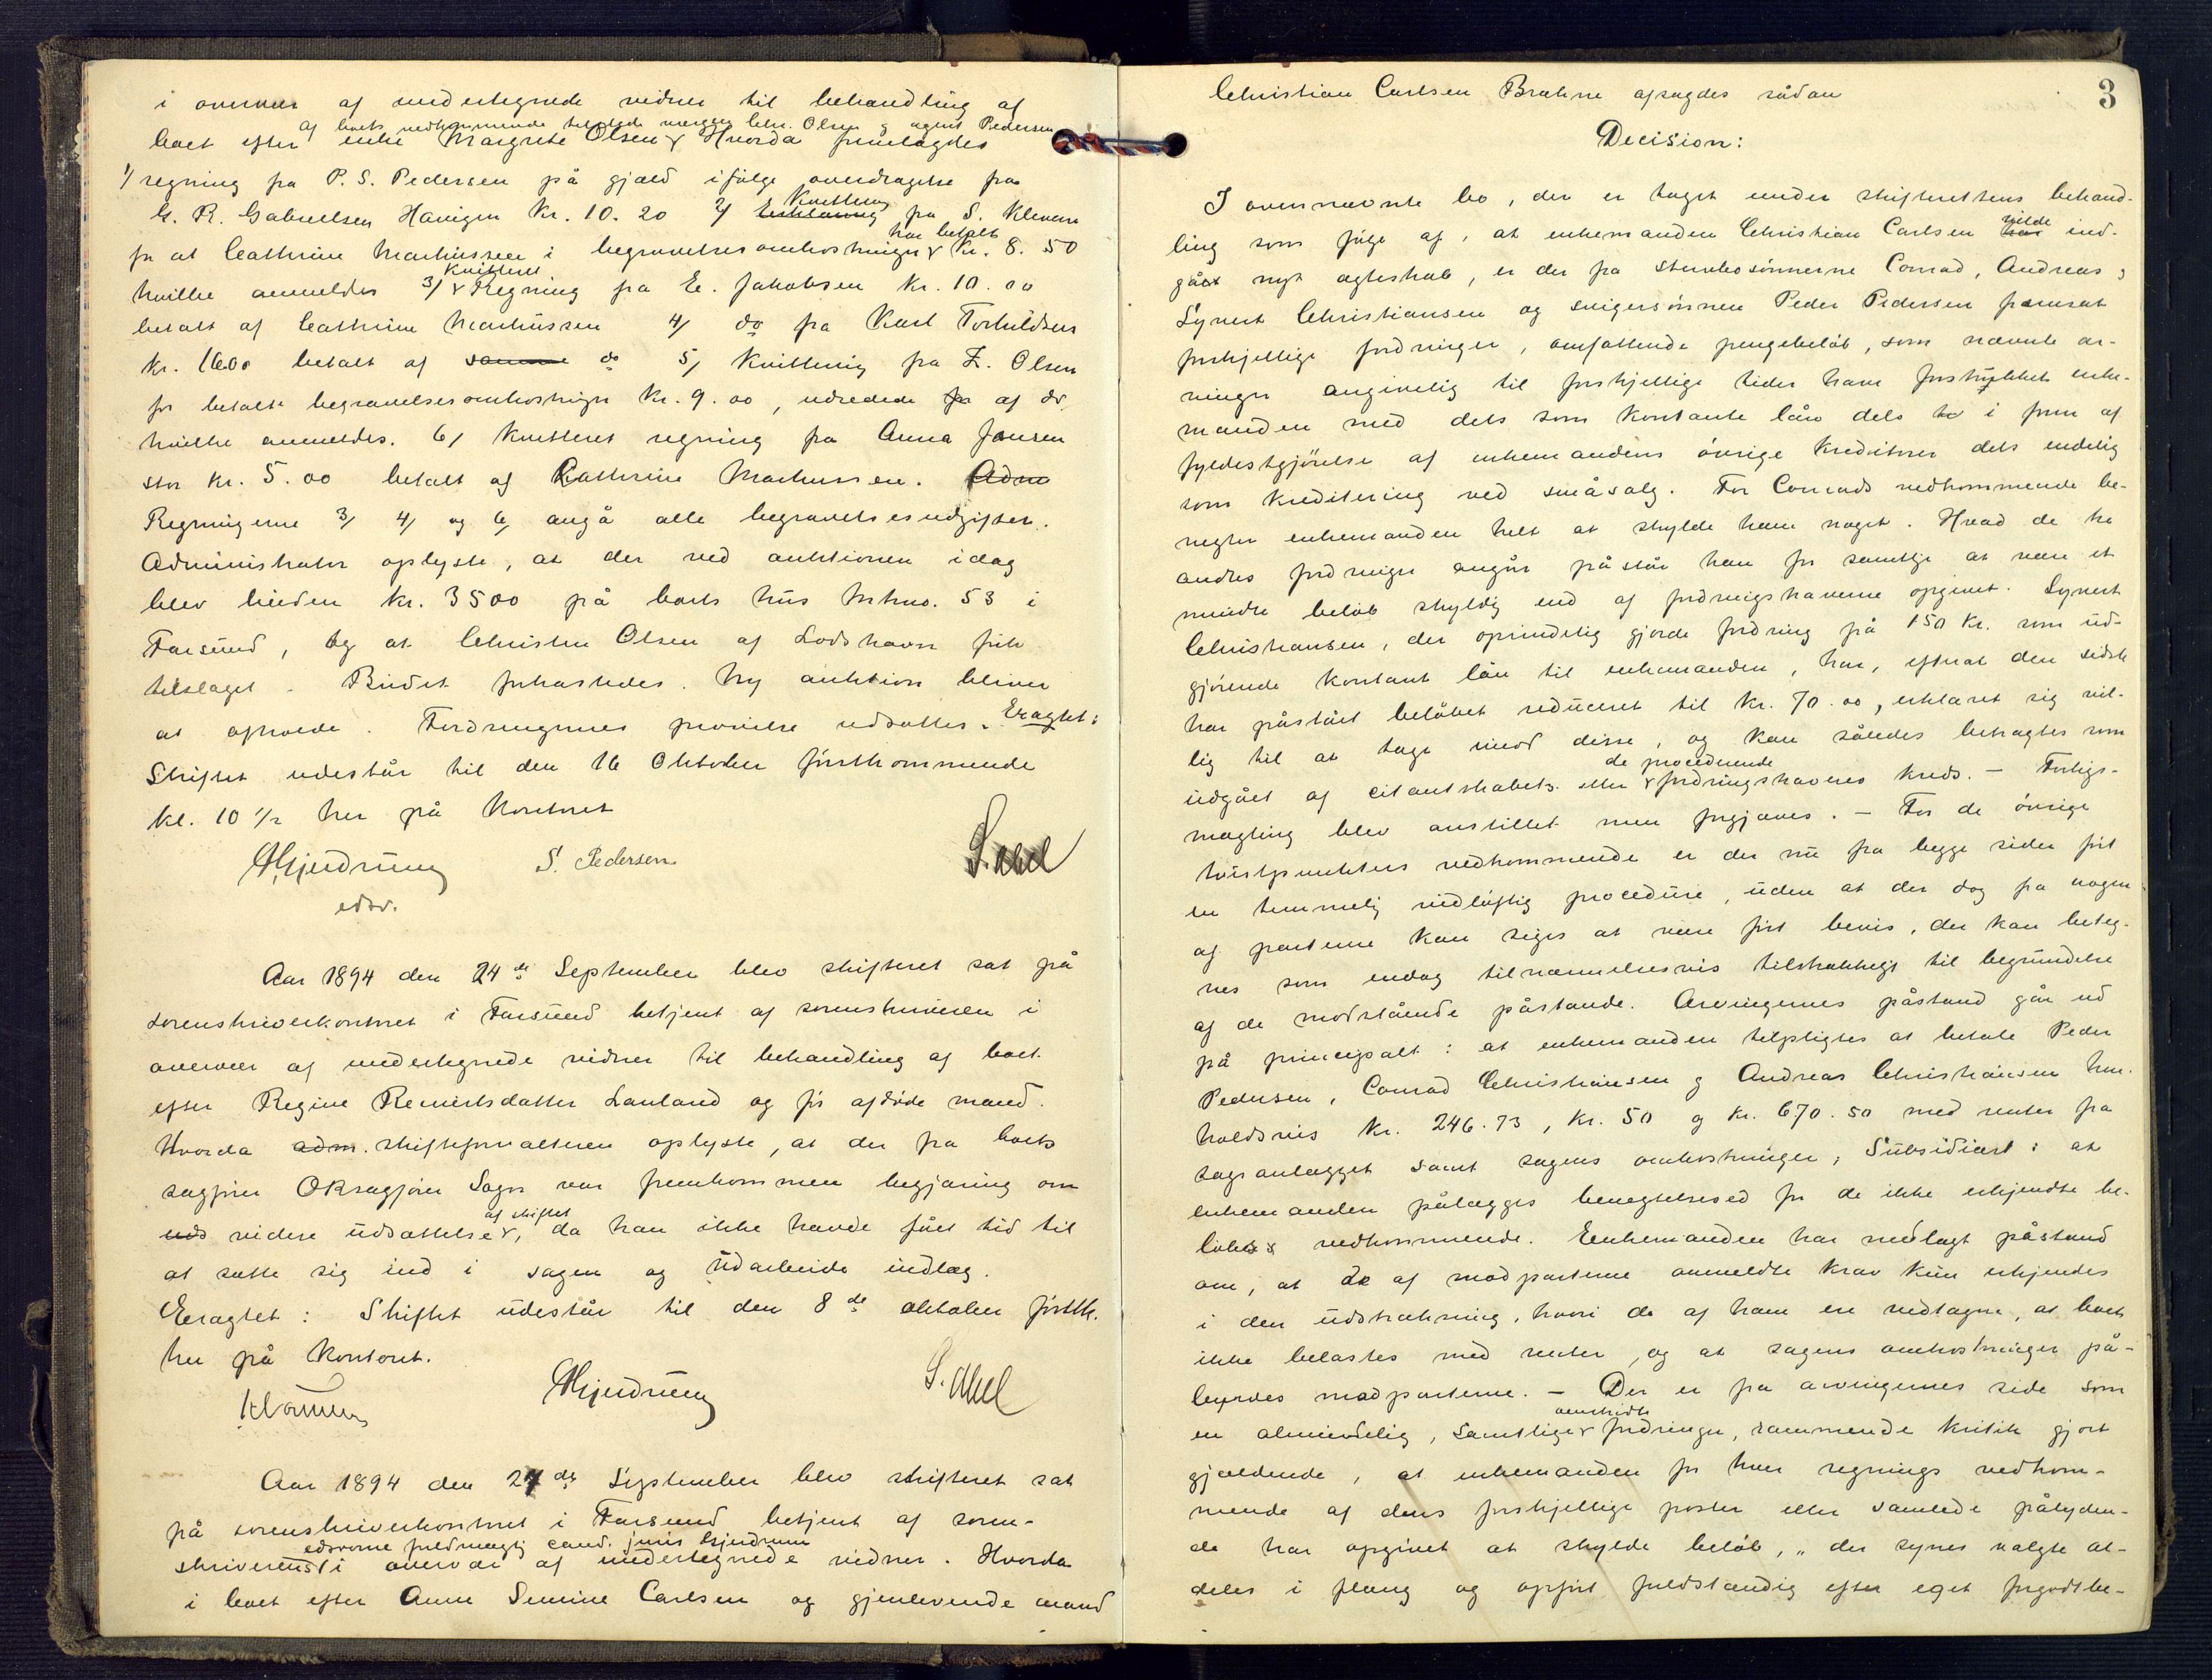 i overvær af undertegnede vidner til behandling af
af boets vedkommende tilstede værge Chr. Olsen og agent Pedersen
boet efter enke Margrete Olsen Hvorda fremlagdes
1/ regning fra P. S. Pedersen på gjæld ifølge overdragelse fra
G. R. Gabrielsen Kr. 10.20 2/ Kvittering fra S. Klevene
for at Cathrine Markussen i begravelsesomkostninger har betalt Kr. 8.50
hvilke anmeldes 3/ Kvitteret Regning fra E. Jakobsen Kr. 10.00
betalt af Cathrine Markussen 4/ do fra Karl Torkildsen
Kr. 16.00 betalt af samme do 5/ Kvittering fra Z. Olsen
for betalte begravelsesomkostninger Kr. 9.00, udredede for af do,
hvilke anmeldes. 6/ Kvitteret regning fra Anna Jansen
stor Kr. 5.00 betalt af Cathrine Markussen. Adm
Regningerne 3/ 4/ og 6/ angå alle begravelsesudgifter.
Administrator oplyste, at der ved auktionen idag
blev buden Kr. 3500 på boets hus Mtrno. 53 i
Farsund, og at Christen Olsen af Lodshavn fik
tilslaget. Budet forkastedes. Ny auktion bliver
at afholde. Fordringernes prøvelse udsattes. Eragtet:
Skiftet udestår til den 16 Oktober førstkommende
kl. 10 1/2 her på kontoret
AHjendrum S. Pedersen S. Abel
edsv.
Aar 1894 den 24de September blev skifteret sat på
sorenskriverkontoret i Farsund betjent af sorenskriveren i
overvær af undertegnede vidner til behandling af boet
efter Regine Reinertsdatter Lauland og før afdøde mand.
Hvorda adm. skifteforvalteren oplyste, at der fra boets
sagfører ORsagfører Sagn var fremkommen begjæring om
uds videre udsættelse af skiftet, da han ikke havde fået tid til
at sætte sig ind i sagen og udarbeide indlæg.
Eragtet: Skiftet udestår til den 8de oktober førstk.
her på kontoret.
AHjendrum S. Abel
Aar 1894 den 27de September blev skifteret sat
på sorenskriverkontoret i Farsund betjent af soren-
edsvorne fuldmægtig cand. juris Hjendrum
skriverens i overvær af undertegnede vidner. Hvorda
i boet efter Anne Semine Carlsen og gjenlevende mand
3
Christian Carlsen Brahne afsagdes sådan
Decision:
I ovennævnte bo, der er taget under skifterettens behand-
ling som følge af, at enkemanden Christian Carlsen har vilde ind-
gået nyt ægteskab, er der fra stervbosønnerne Conrad, Andreas og
Synert Christiansen og svigersønnen Peder Pedersen fremsat
forskjellige fordringer, omfattende pengebeløb, som nævnte ar-
vinger angivelig til forskjellige tider have forstrukket enke-
manden med dels som kontante lån dels to i form af
fyldestgjørelse af enkemandens øvrige kreditorer dels endelig
som kreditering ved småsalg. For Conrads vedkommende be-
negter enkemanden helt at skylde ham noget. Hvad de tre
andres fordringer angår påstår han for samtlige at være et
mindre beløb skyldig end af fordringshaverne opgivet. Synert
Christiansen, der oprindelig gjorde fordring på 150 Kr. som ud-
gjørende kontant lån til enkemanden, har, efterat den sidste
har påstået beløbet reduceret til Kr. 70.00, erklæret sig vil-
lig til at tage imod disse, og kan således betragtes som
udgået af citantskabets eller de procederende fordringshaveres kreds. – Forligs-
mægling blev anstillet men forgjæves. – For de øvrige
tvistpunkters vedkommende er der nu fra begge sider ført
en temmelig vidløftig procedure, uden at der dog fra nogen
af parterne kan siges at være ført bevis, der kan beteg-
nes som endog tilnærmelsesvis tilstrækkeligt til begrundelse
af de modstående påstande. Arvingernes påstand går ud
på principalt: at enkemanden tilpligtes at betale Peder
Pedersen, Conrad Christiansen og Andreas Christiansen hen-
holdsvis Kr. 246.73, Kr. 50 og Kr. 670.50 med renter fra
sagsanlægget samt sagens omkostninger; Subsidiært: at
enkemanden pålægges benegtelsesed for de ikke erkjendte be-
løbes vedkommende. Enkemanden har nedlagt påstand
om, at de af modparterne anmeldte krav kun erkjendes
i den udstrækning, hvori de af ham ere vedtagne, at boet
ikke belastes med renter, og at sagens omkostninger på-
byrdes modparterne. – Der er fra arvingernes side som
en almindelig, samtlige omtvistede fordringer, rammende kritik gjort
gjældende, at enkemanden for hver regnings vedkom-
mende af dens forskjellige poster eller samlede pålyden-
de har opgivet at skylde beløb, „der synes valgte al-
deles i flæng og opført fuldstændig efter eget forgodtbe-